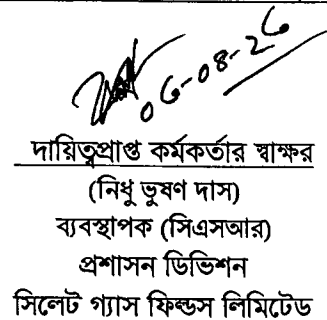 ০৬-০৪-২৬
দায়িত্বপ্রাপ্ত কর্মকর্তার স্বাক্ষর
(নিধু ভুষণ দাস)
ব্যবস্থাপক (সিএসআর)
প্রশাসন ডিভিশন
সিলেট গ্যাস ফিল্ডস লিমিটেড